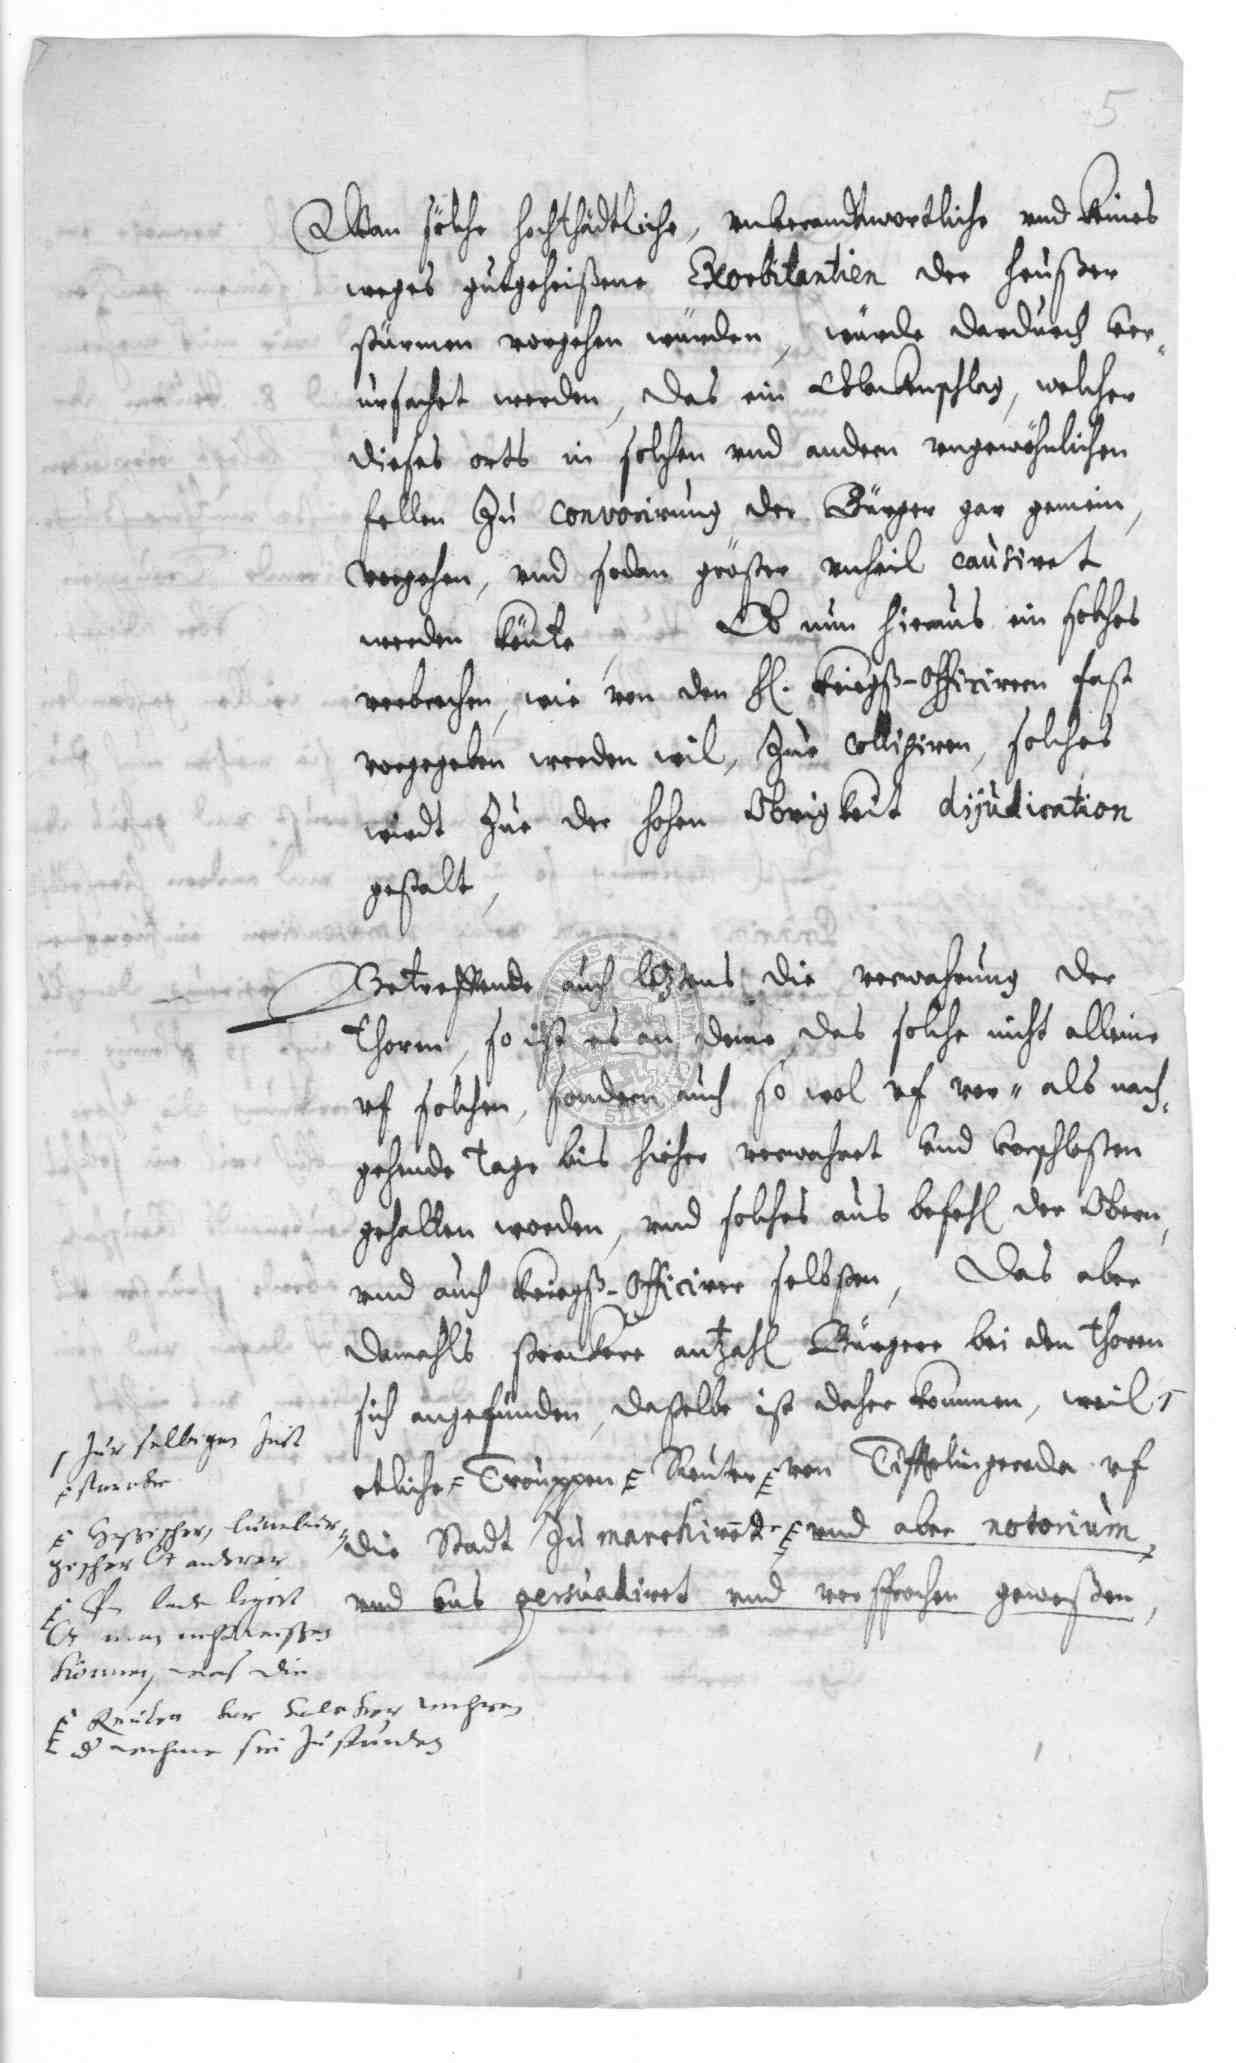 5
Wan solche hochschädtliche, unverandtwortliche vnd keines
weges gutgeheißene Exorbitantien der heußer
stürmen vorgehen würden, würde dardurch ver-
ursachet werden, das ein Klockenschlag, welcher
dieses orts in solchen vnd andern vngewöhnlichen
fellen zu convocirung der Bürger gar gemein,
vorgehen, vnd sodan größer vnheil causiret
werden könte, Ob nun hieraus ein solches
verbrechen, wie von den H. Kriegß-Officirern fast
vorgegeben werden wil, zue colligiren, solches
wirdt zue der hohen Obrigkeit dijudication
gestalt,
Betreffende auch letztens die verwahrung der
Thoren, so ist es an deme, das solche nicht alleine
vf solchen, sondern auch so wol vf vor- als nach-
gehende Tage bis hieher verwahret vnd verschloßen
gehalten worden, vnd solches aus befehl der Obern,
vnd auch Kriegß-Officirer selbsten, Das aber
damahls sterckere antzahl Bürgere bei den Thoren
sich angefunden, daßelbe ist daher kommen, weil
etliche Trouppen Reuter von Tifftelingerode vf
die Stadt zu marchiret vnd aber notorium
vnd vns persuadiret vnd versprochen geweßen,
zur selbigen Zeit
starcke
Heßischer, lunebur-
gischer vnd anderer
man nicht wißen
können, was die
Reuter